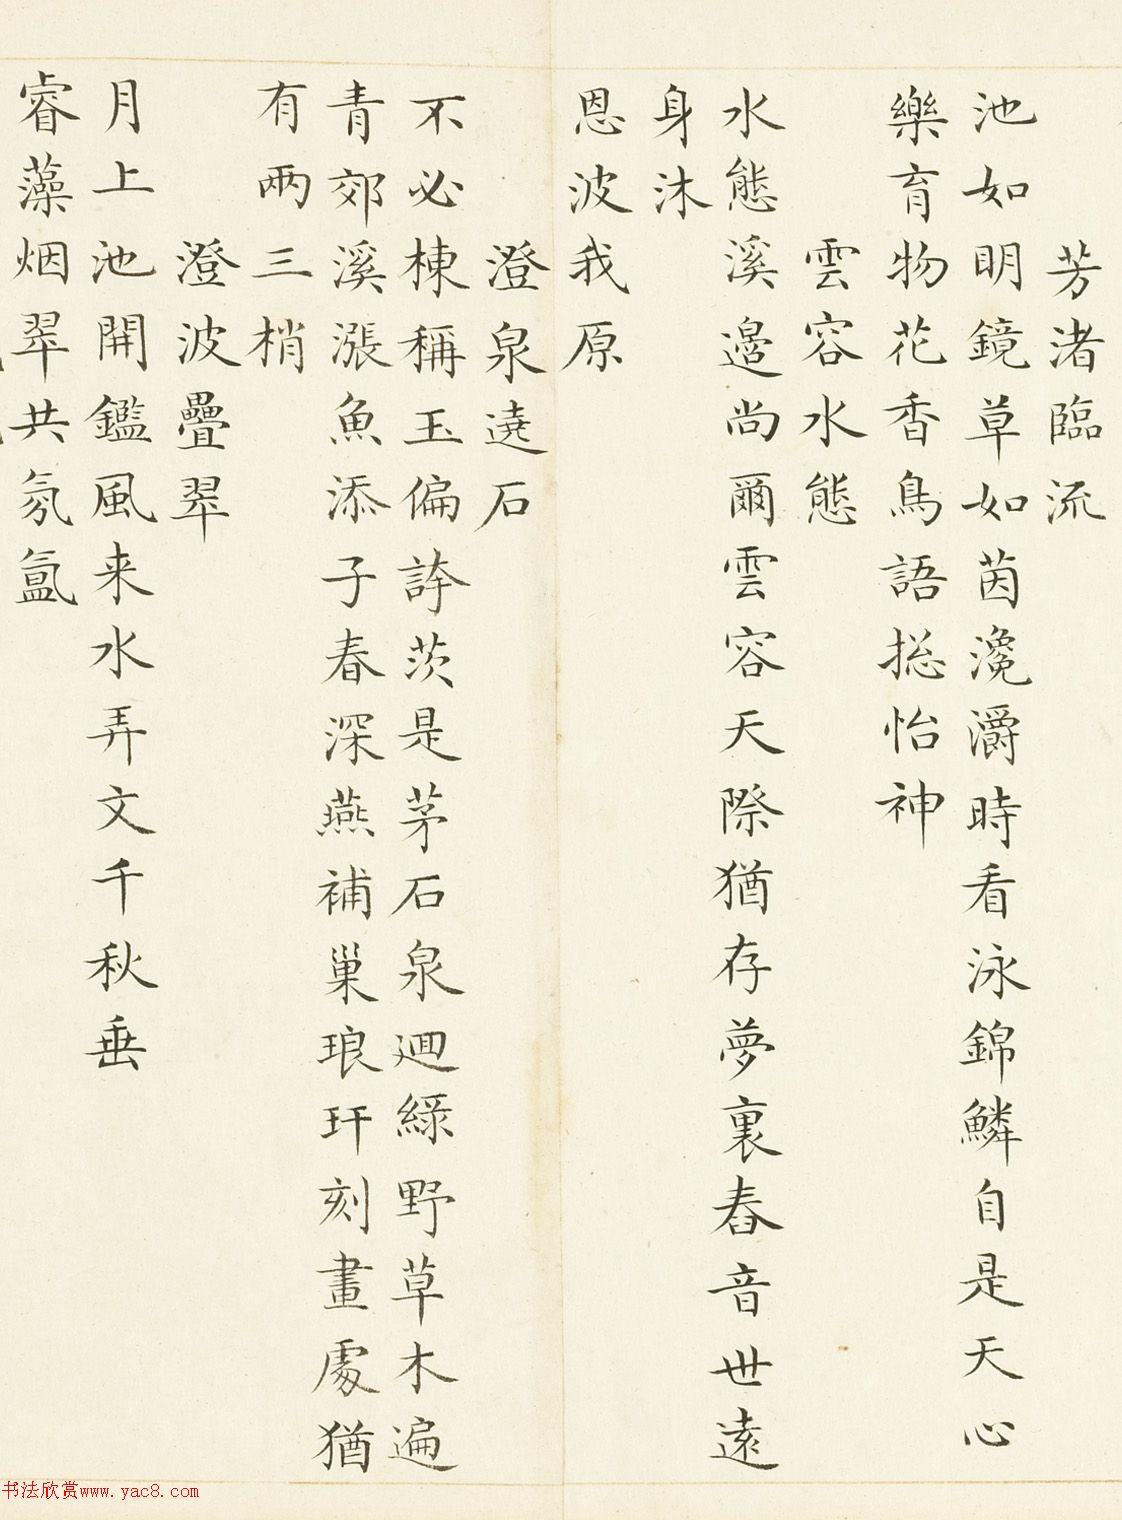 芳渚臨流
池如明鏡草如茵瀺灂時看泳錦鱗自是天心
樂育物花香鳥語捴怡神
雲容水態
水態溪邊尚爾雲容天際猶存夢裏舂音世遠
身沐
恩波我原
澄泉遶石
不必棟稱玉偏誇茨是茅石泉迴綠野草木遍
青郊溪漲魚添子春深燕補巢琅玕刻畫處猶
有兩三梢
澄波疊翠
月上池開鑑風来水弄文千秋垂
睿藻烟翠共氛氳
书法欣赏www.yac8.com